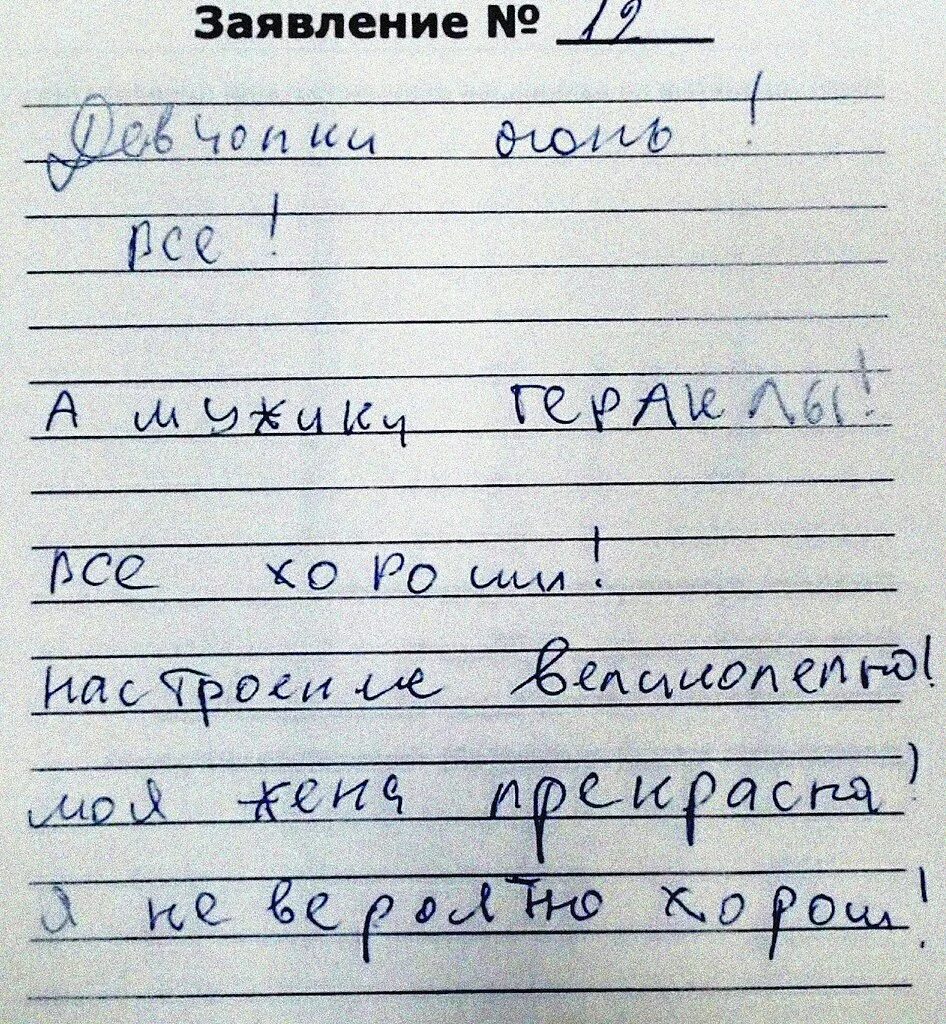 Заявление № 12
Девчонки огонь!
все!
А мужики ГЕРАКЛЫ!
все хороши!
настроение великолепно!
моя жена прекрасна!
Я не вероятно хорош!